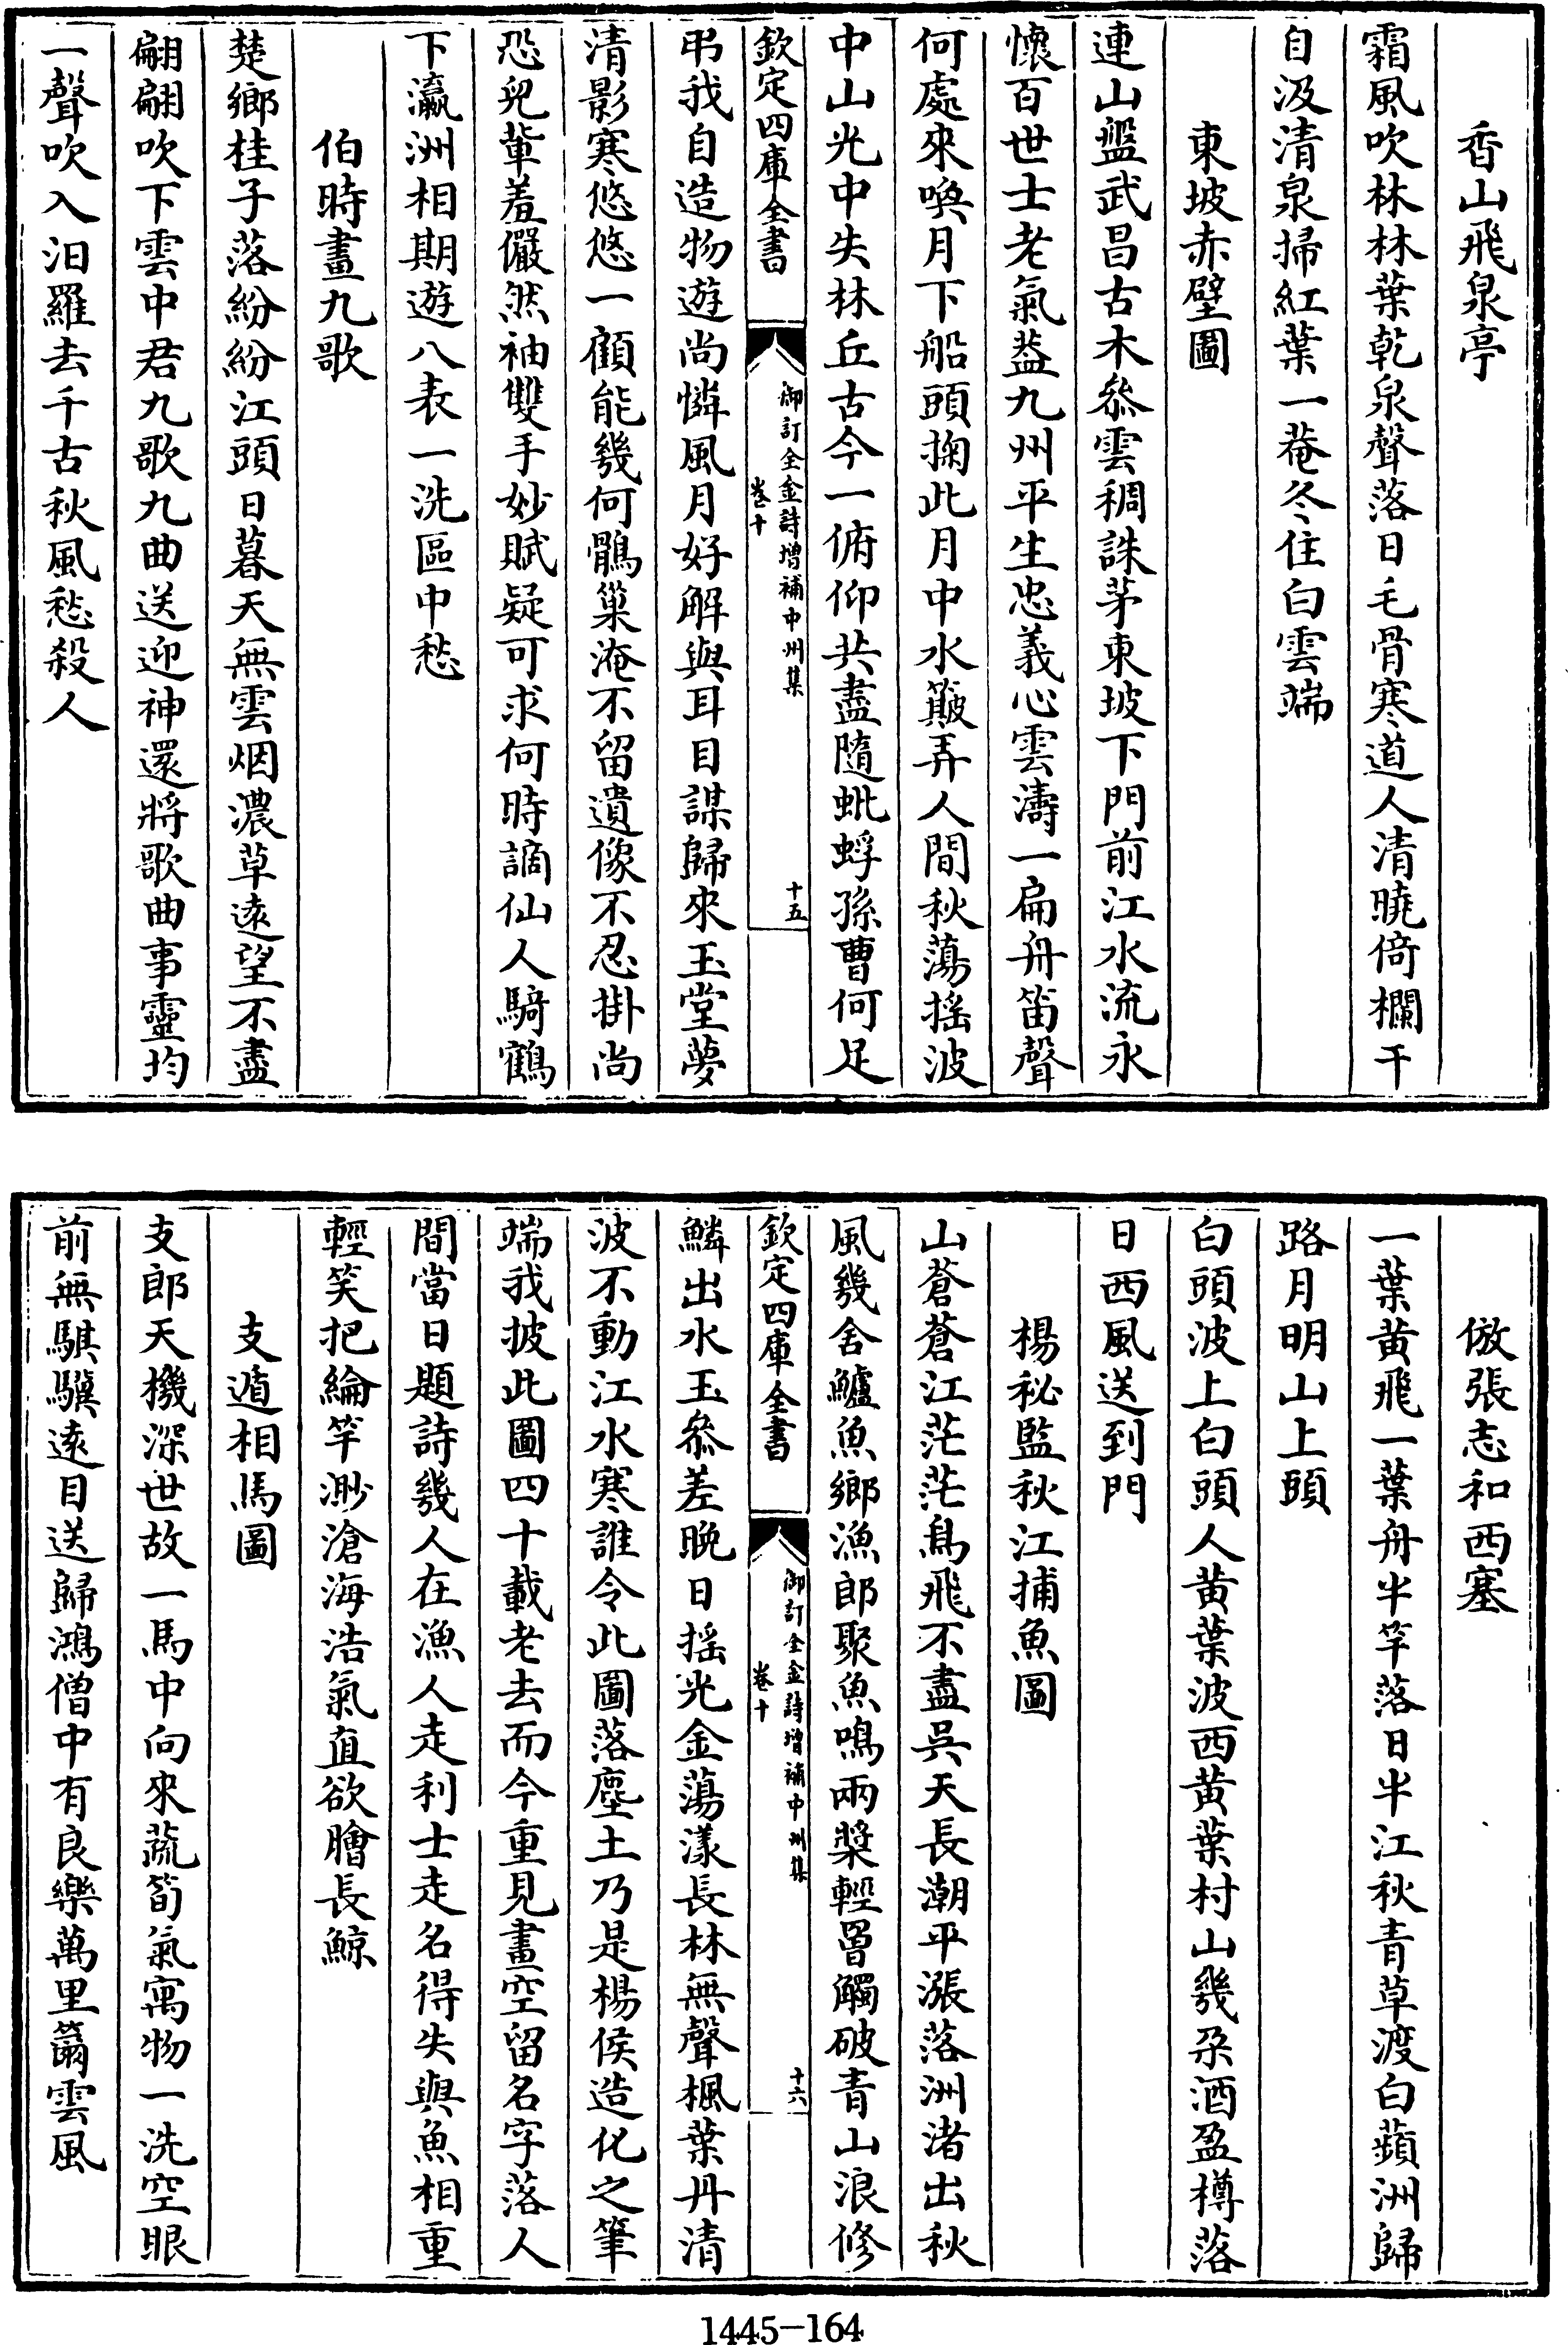 香山飛泉亭
霜風吹林林葉乾泉聲落日毛骨寒道人清曉倚欄干
自汲清泉掃紅葉一菴冬住白雲端
東坡赤壁圖
連山盤武昌古木叅雲稠誅茅東坡下門前江水流永
懷百世士老氣葢九州平生忠義心雲濤一扁舟笛聲
何處來喚月下船頭掬此月中水簸弄人間秋蕩揺波
中山光中失林丘古今一俯仰共盡隨蚍蜉孫曹何足
欽定四庫全書
御訂全金詩增補中州集
卷十
十五
弔我自造物遊尚憐風月好解與耳目謀歸來玉堂夢
清影寒悠悠一顧能幾何鶻巢淹不留遺像不忍掛尚
恐兒輩羞儼然袖雙手妙賦疑可求何時謫仙人騎鶴
下瀛洲相期遊八表一洗區中愁
伯時畫九歌
楚鄉桂子落紛紛江頭日暮天無雲烟濃草遠望不盡
翩翩吹下雲中君九歌九曲送迎神還將歌曲事靈均
一聲吹入汨羅去千古秋風愁殺人
倣張志和西塞
一葉黃飛一葉舟半竿落日半江秋青草渡白蘋洲歸
路月明山上頭
白頭波上白頭人黃葉波西黃葉村山幾朶酒盈樽落
日西風送到門
楊秘監秋江捕魚圖
山蒼蒼江茫茫鳥飛不盡吳天長潮平漲落洲渚出秋
風幾舍鱸魚鄉漁郎聚魚鳴兩槳輕罾觸破青山浪修
欽定四庫全書
御訂全金詩增補中州集
卷十
十六
鱗出水玉叅差晚日揺光金蕩漾長林無聲楓葉丹清
波不動江水寒誰令此圖落塵土乃是楊侯造化之筆
端我披此圖四十載老去而今重見畫空留名字落人
間當日題詩幾人在漁人走利士走名得失與魚相重
輕笑把綸竿渺滄海浩氣直欲膾長鯨
支遁相馬圖
支郎天機深世故一馬中向來蔬筍氣寓物一洗空眼
前無騏驥遠目送歸鴻僧中有良樂萬里籋雲風
1445-164